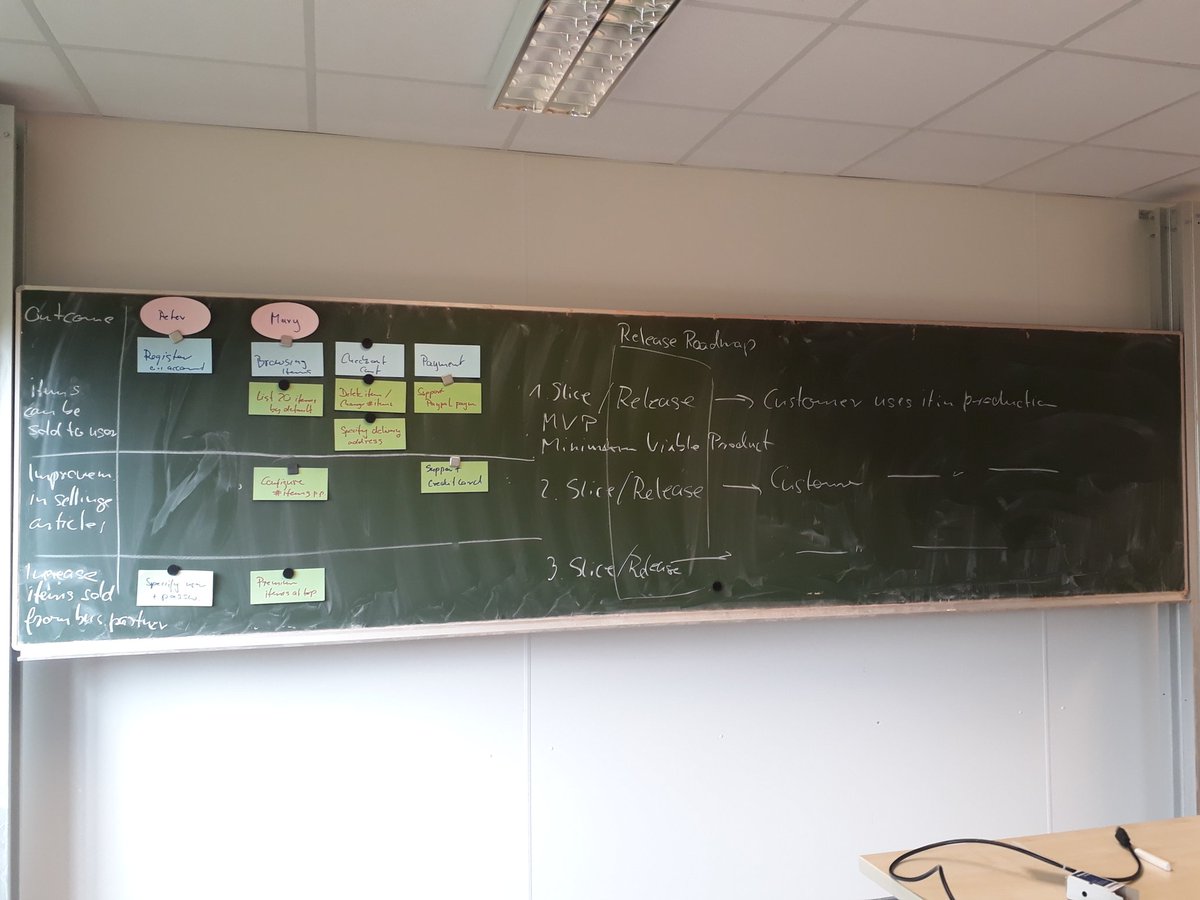 Outcome
Peter
Mary
Register
an account
Browsing
items
Checkout
cart
Payment
Release Roadmap
items
can be
sold to user
List 20 items
by default
Delete item /
Change # items
Support
Paypal paym
Specify delivery
address
1. Slice / Release → Customer uses it in production
MVP
Minimum Viable Product
Improvem.
in selling
articles
Configure
# items p p
Support
Credit card
2. Slice/Release → Customer
Increase
items sold
from bus. partner
Specify user
Premium
items at top
3. Slice/Release →